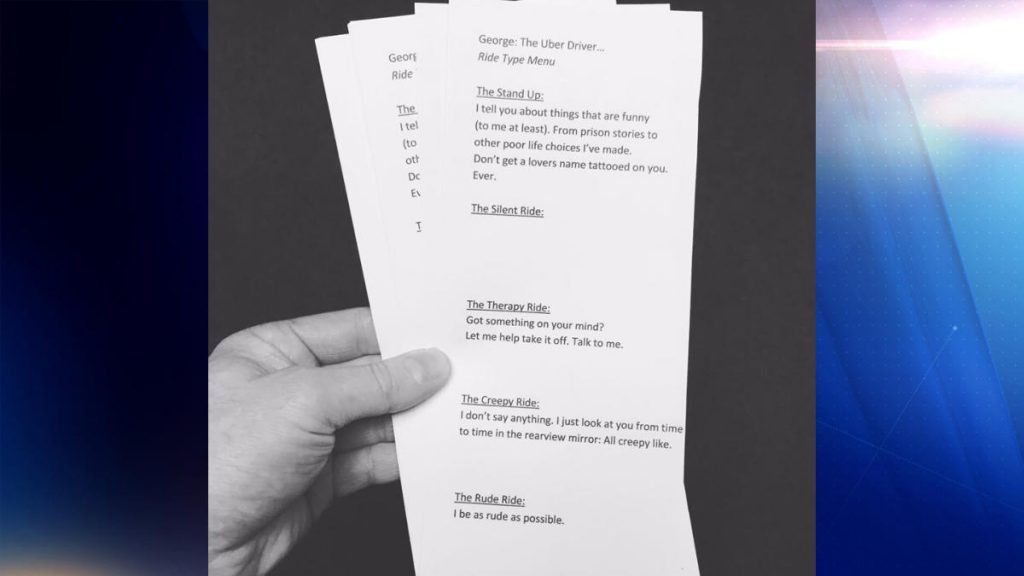 George: The Uber Driver...
Ride Type Menu
The Stand Up:
I tell you about things that are funny
(to me at least). From prison stories to
other poor life choices I've made.
Don't get a lovers name tattooed on you.
Ever.
The Silent Ride:
The Therapy Ride:
Got something on your mind?
Let me help take it off. Talk to me.
The Creepy Ride:
I don't say anything. I just look at you from time
to time in the rearview mirror: All creepy like.
The Rude Ride:
I be as rude as possible.
Ride
The
I tel
(to